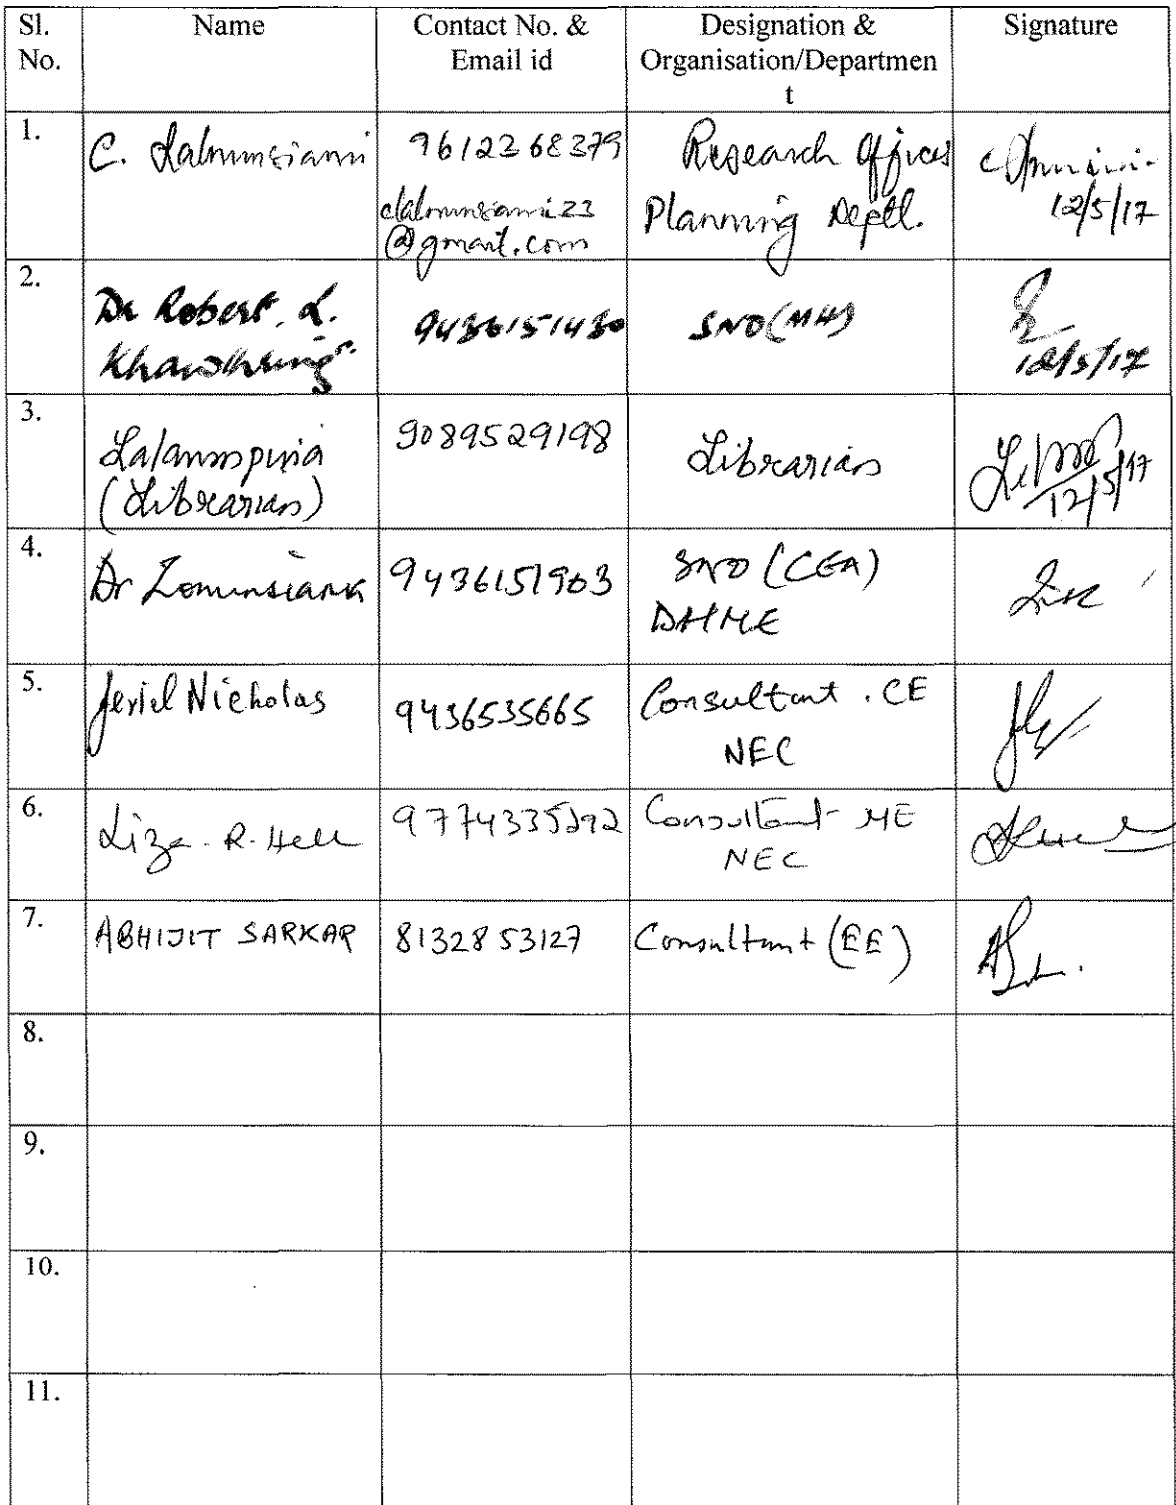 Sl. No. | Name | Contact No. & Email id | Designation & Organisation/Department | Signature
1. | C. Lalnunsiami | 9612368379 clalnunsiami23@gmail.com | Research Officer Planning Deptt. | 12/5/17
2. | Dr Robert. L. Khawlhring | 9436151430 | SNO(MH) | 12/5/17
3. | (Librarian) | 9089529198 | Librarian | 12/5/17
4. | Dr Zomunsiana | 9436151903 | SNO (CEA) DHME
5. | Jeriel Nicholas | 9436535665 | Consultant . CE NEC
6. | Liza - R. Hell | Consultant ME NEC
7. | ABHIJIT SARKAR | 8132853127 | Consultant (EE)
8.
9.
10.
11.